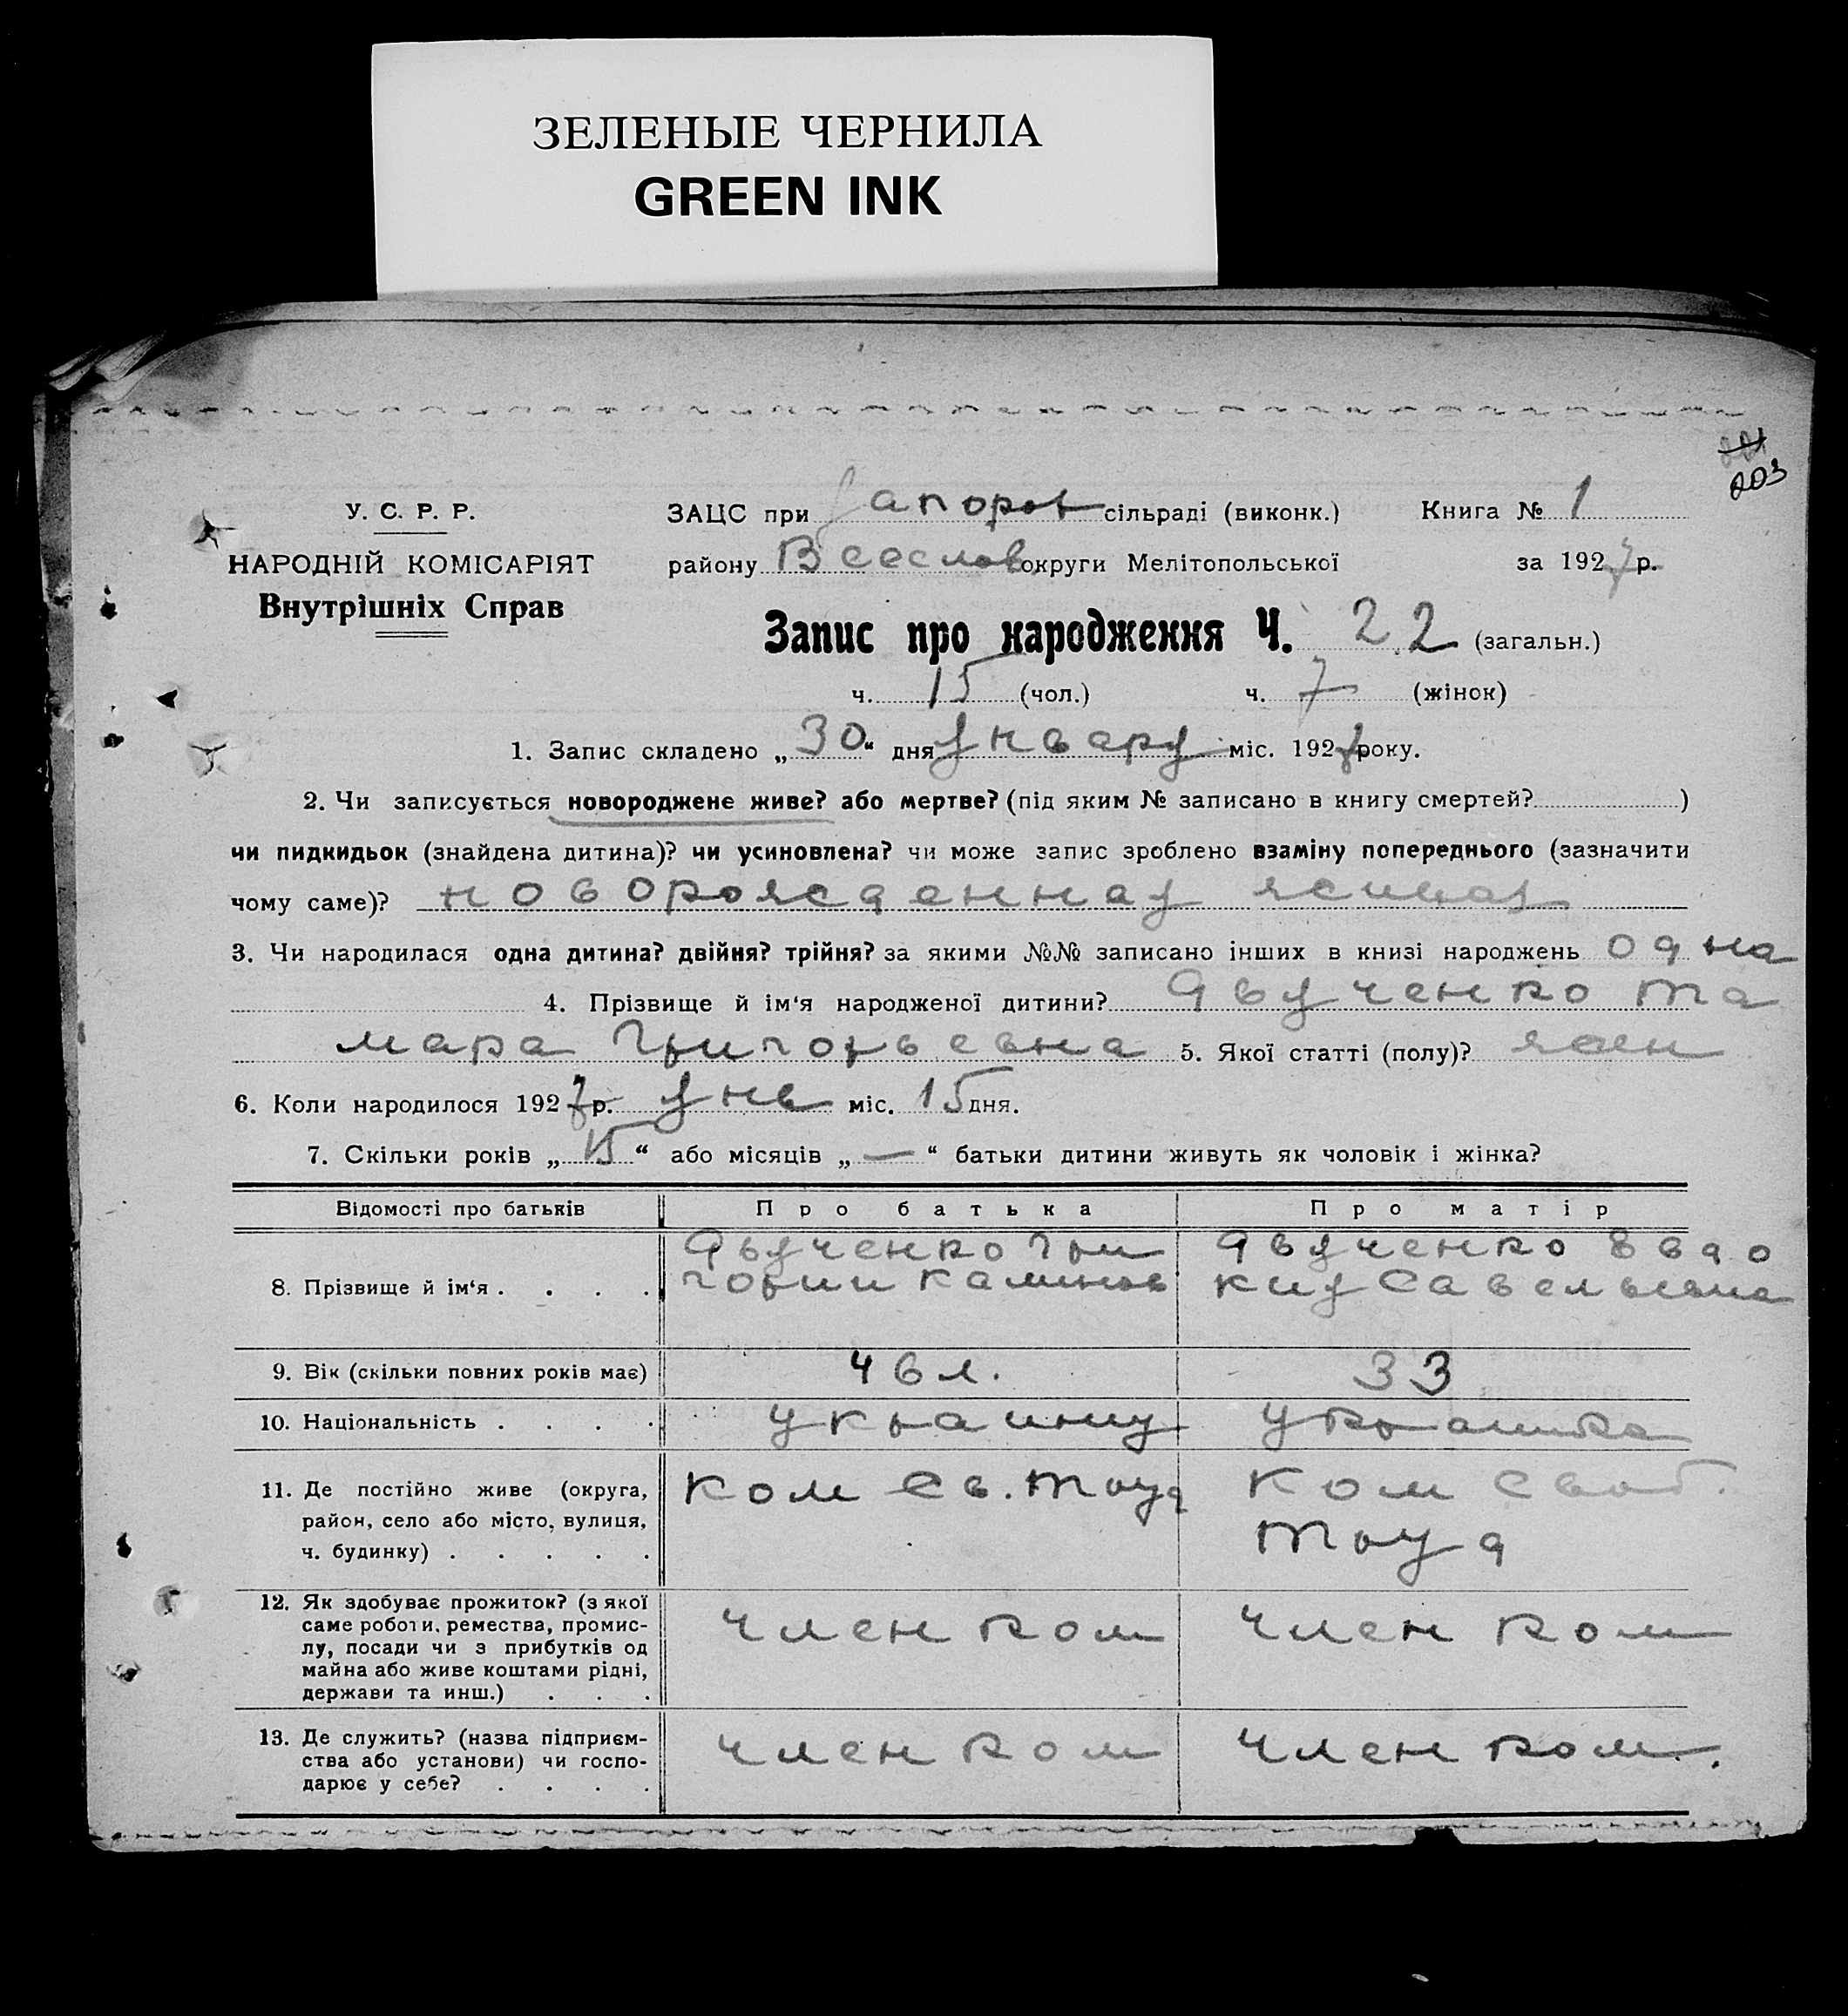 ЗЕЛЕНЫЕ ЧЕРНИЛА
GREEN INK
203
У. С. Р. Р.
НАРОДНІЙ КОМІСАРІЯТ
Внутрішніх Справ
ЗАЦС при Запорож сільраді (виконк.) Книга № 1
району Веселов округи Мелітопольської за 1927 р.
Запис про народження Ч. 22 (загальн.)
ч. 15 (чол.) ч. 7 (жінок)
1. Запис складено „30“ дня января міс. 1927 року.
2. Чи записується новороджене живе? або мертве? (під яким № записано в книгу смертей? )
чи пидкидьок (знайдена дитина)? чи усиновлена? чи може запис зроблено взаміну попереднього (зазначити
чому саме)? новорожденная живая
3. Чи народилася одна дитина? двійня? трійня? за якими №№ записано інших в книзі народжень одна
4. Прізвище й ім‘я народженої дитини? Двученко Та
мара Григорьевна 5. Якої статті (полу)? жен
6. Коли народилося 1927 р. янв міс. 15 дня.
7. Скільки років „15“ або місяців „—“ батьки дитини живуть як чоловік і жінка?
Відомості про батьків Про батька Про матір
8. Прізвище й ім‘я . . . . Двученко Гри Двученко Евдо
горий Каминов кия Савельевна
9. Вік (скільки повних років має) 46 л. 33
10. Національність . . . . украинц украинка
11. Де постійно живе (округа, ком Св. Труд ком Своб.
район, село або місто, вулиця, Труд
ч. будинку) . . . . .
12. Як здобуває прожиток? (з якої
саме роботи, ремества, промис- член ком член ком
лу, посади чи з прибутків од
майна або живе коштами рідні,
держави та инш.) . . .
13. Де служить? (назва підприєм- член ком член ком.
ства або установи) чи госпо-
дарює у себе? . . . .